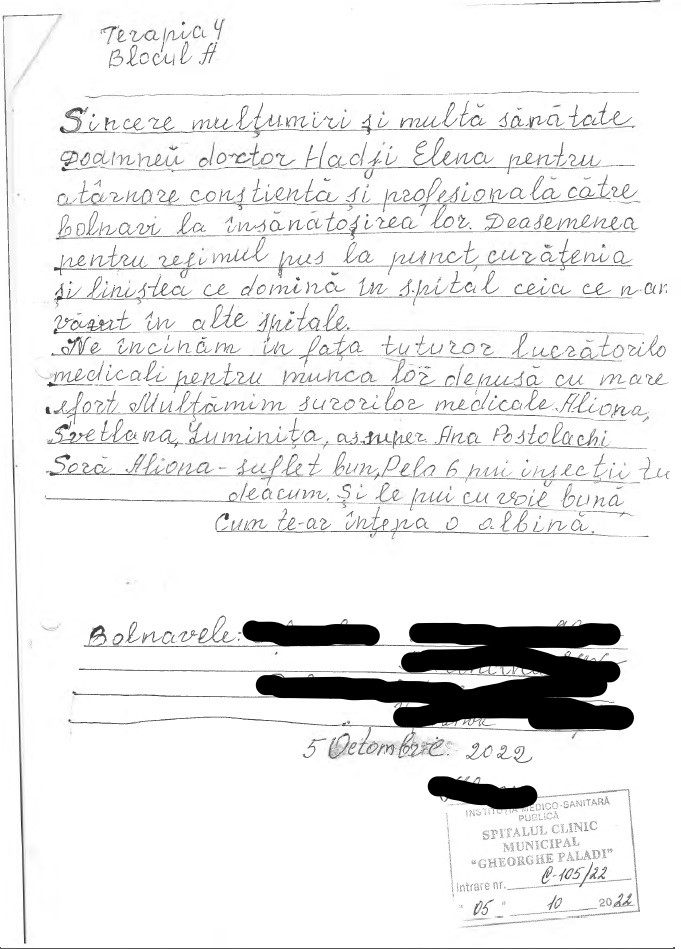 Terapia 4
Blocul A
Sincere mulţumiri şi multă sănătate
Doamnei doctor Hadji Elena pentru
atârnare conştientă şi profesională către
bolnavi la însănătoşirea lor. Deasemenea
pentru regimul pus la punct, curăţenia
şi liniştea ce domină în spital ceia ce n-am
văzut în alte spitale.
Ne încinăm în faţa tuturor lucrătorilo
medicali pentru munca lor depusă cu mare
efort. Mulţămim surorilor medicale Aliona,
Svetlana, Luminiţa, as. super. Ana Postolachi
Soră Aliona - suflet bun, Pela 6 pui injecţii tu
deacum. Şi le pui cu voie bună,
Cum te-ar înţepa o albină.
Bolnavele:
5 Octombrie. 2022
INSTITUŢIA MEDICO-SANITARĂ
PUBLICĂ
SPITALUL CLINIC
MUNICIPAL
"GHEORGHE PALADI"
intrare nr. C-105/22
"05" 10 2022